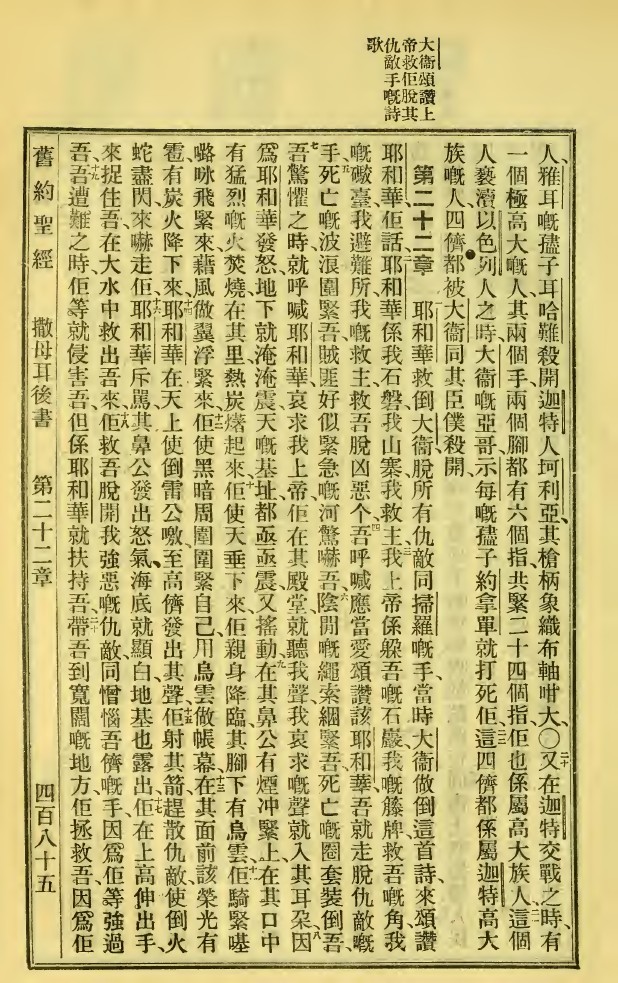 大衞頌讚上
帝救佢脫其
仇敵手嘅詩
歌
人、雅耳嘅孻子耳哈難殺開迦特人坷利亞、其槍柄象織布軸咁大、〇二十又在迦特交戰之時、有
一個極高大嘅人、其兩個手、兩個腳都有六個指、共緊二十四個指、佢也係屬高大族人、二一這個
人褻瀆以色列人之時、大衞嘅亞哥示每嘅孻子約拿單就打死佢、二二這四儕都係屬迦特高大
族嘅人、四儕都被大衞同其臣僕殺開、
第二十二章 一耶和華救倒大衞脫所有仇敵同掃羅嘅手、當時大衞做倒這首詩來頌讚
耶和華、二佢話耶和華係我石磐、我山寨、我救主、三我上帝係躲吾嘅石巖、我嘅籐牌、救吾嘅角、我
嘅礮臺、我避難所、我嘅救主、救吾脫凶惡个、四吾呼喊應當愛頌讚該耶和華、吾就走脫仇敵嘅
手、五死亡嘅波浪圍緊吾、賊匪好似緊急嘅河驚嚇吾、六陰間嘅繩索綑緊吾、死亡嘅圈套裝倒吾、
七吾驚懼之時、就呼喊耶和華、哀求我上帝、佢在其殿堂就聽我聲、我哀求嘅聲就入其耳朶、八因
爲耶和華發怒、地下就淹淹震、天嘅基址都亟亟震又搖動、九在其鼻公有煙冲緊上、在其口中
有猛烈嘅火焚燒、在其里熱炭㷮起來、十佢使天垂下來、佢親身降臨、其腳下有烏雲、十一佢騎緊𠻹
嚕咏飛緊來、藉風做翼浮緊來、十二佢使黑暗周圍圍緊自己、用烏雲做帳幕、十三在其面前該榮光有
雹有炭火降下來、十四耶和華在天上使倒雷公噭、至高儕發出其聲、十五佢射其箭趕散仇敵、使倒火
蛇盡閃來嚇走佢、十六耶和華斥罵、其鼻公發出怒氣、海底就顯白、地基也露出、十七佢在上高伸出手、
來捉住吾、在大水中救出吾來、十八佢救吾脫開我強惡嘅仇敵、同憎惱吾儕嘅手、因爲佢等強過
吾、十九吾遭難之時、佢等就侵害吾、但係耶和華就扶持吾、二十帶吾到寬闊嘅地方、佢拯救吾、因爲佢
舊約聖經 撒母耳後書 第二十二章 四百八十五